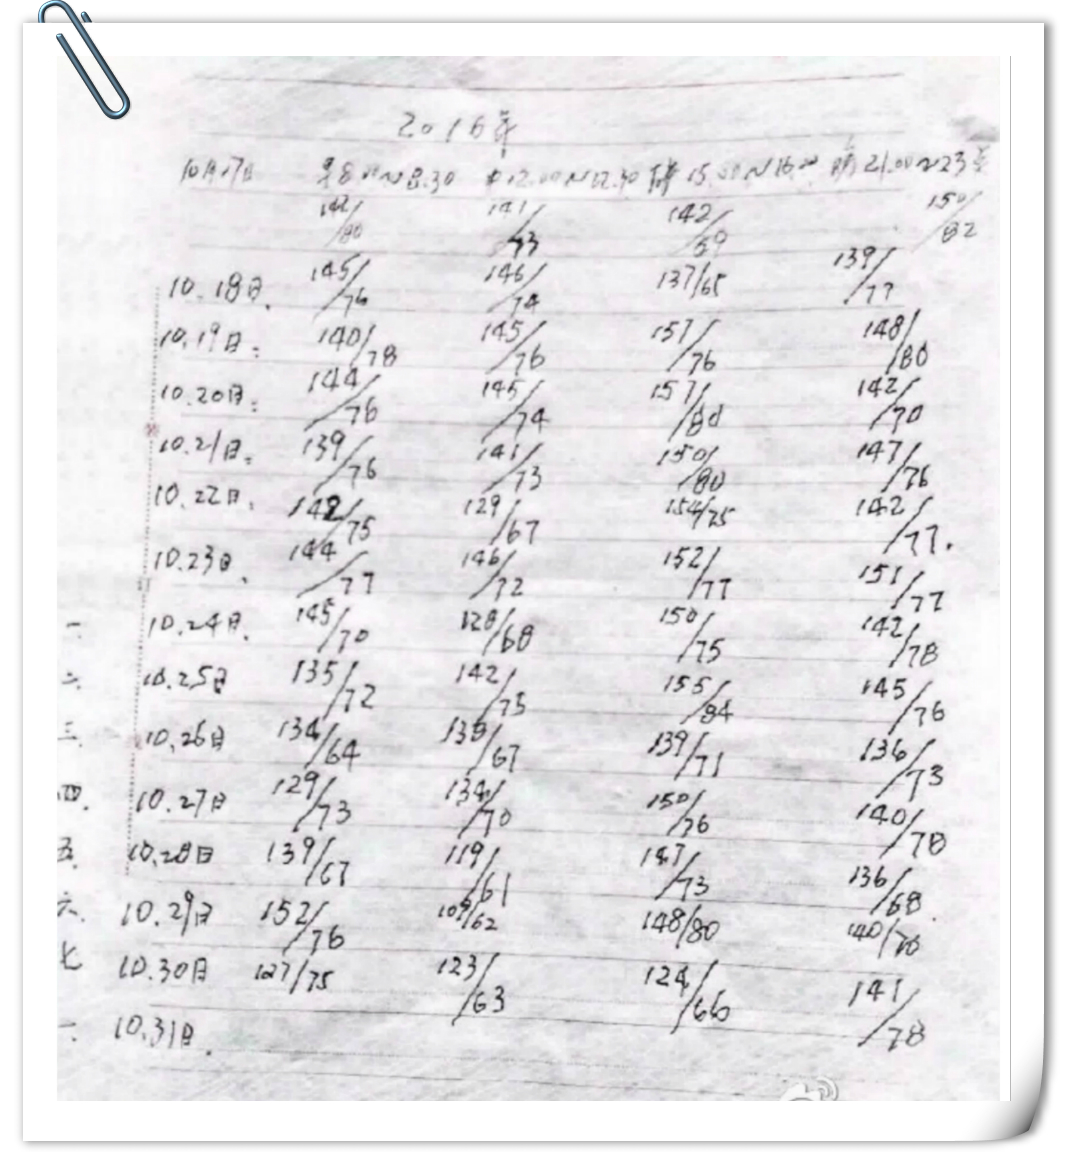 2016年
10月17日 早8:00~8:30 中12:00~12:30 15:00~16:00 晚21:00~23:00
142/80 141/73 142/59 150/82
10.18日. 145/76 146/74 137/65 139/77
10.19日: 140/78 145/76 157/76 148/80
10.20日: 144/76 145/74 157/80 142/70
10.21日: 139/76 141/73 150/80 147/76
10.22日. 142/75 129/67 154/75 142/77.
10.23日. 144/77 146/72 152/77 151/77
一. 10.24日. 145/70 128/68 150/75 142/78
二. 10.25日 135/72 142/75 155/84 145/76
三. 10.26日 134/64 138/67 139/71 136/73
四. 10.27日 129/73 134/70 150/76 140/78
五. 10.28日 139/67 119/61 147/73 136/68.
六. 10.29日 152/76 109/62 148/80 140/70
七 10.30日 127/75 123/63 124/66 141/78
一. 10.31日.